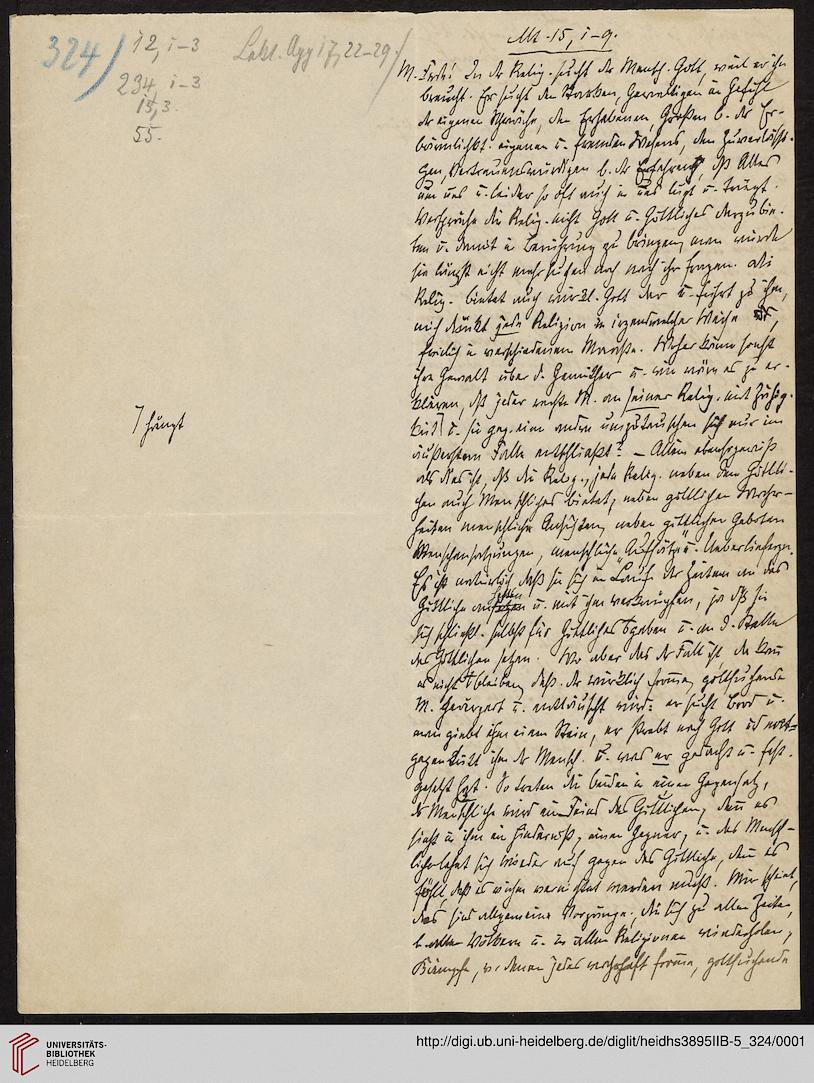 324
12, 1–3
Lekt. Apg 17, 22–29.
234, 1–3
15, 3.
55.
hängt
Mt. 15, 1–9.
M. Frde! In der Relig. sucht der Mensch Gott, weil er ihn
braucht. Er sucht den Starken, Gewaltigen im Gefühl
der eigenen Schwäche, den Erhabenen, Großen b. der Er-
bärmlichkt. eigenen u. fremden Wesens, den Zuverlässi-
gen, Vertrauenswürdigen b. der Erfahrung, dß Alles
um uns u. leider so oft auch in uns lügt u. trügt.
Verspräche die Relig. nicht Gott u. Göttliches darzubie-
ten u. damit in Berührung zu bringen, man würde
sie längst nicht mehr suchen noch nach ihr fragen. Die
Relig. bietet auch wirkl. Gott dar u. führt zu ihm,
mich dünkt jede Religion in irgendwelcher Weise
freilich in verschiedenem Maaße. Woher käme sonst
ihre Gewalt über d. Gemüther u. wie wäre es zu er-
klären, dß jeder rechte M. an seiner Relig. mit Zähig-
keit u. sie geg. eine andre umzutauschen sich nur im
äußersten Falle entschließt? – Allein ebenso gewiß
als dies ist, dß die Relig., jede Relig. neben dem Göttli-
chen auch Menschliches bietet, neben göttlichen Wahr-
heiten menschliche Ansichten, neben göttlichen Geboten
Menschensatzungen, menschliche "Aufsätze" u. Ueberlieferungn.
Es ist natürlich, daß sie sich im Lauf der Zeiten an das
Göttliche u. mit ihm verknüpfen, ja dß sie
sich schließl. selbst für Göttliches ausgeben u. an d. Stelle
des Göttlichen setzen. Wo aber das der Fall ist, da kann
es nicht ausbleiben, daß der wirklich fromme, gottsuchende
M. geärgert u. enttäuscht wird: er sucht Brod u.
man giebt ihm einen Stein, er strebt nach Gott und
gegen tritt ihm der Mensch u. was er gedacht u. fest-
gesetzt hat. So treten die beiden in einen Gegensatz,
das Menschliche wird ein Feind des Göttlichen, denn es
sieht in ihm ein Hinderniß, einen Gegner, u. das Mensch-
liche lehnt sich wieder auf gegen das Göttliche, denn es
fühlt, daß es vernichtet werden müßt. Mir scheint,
das sind allgemeine Vorgänge, die sich zu allen Zeiten,
b. allen Völkern u. in allen Religionen wiederholen,
Kämpfe, v. denen jedes wahrhaft fromme, gottsuchende
UNIVERSITÄTS-
BIBLIOTHEK
HEIDELBERG
http://digi.ub.uni-heidelberg.de/diglit/heidhs3895IIB-5_324/0001